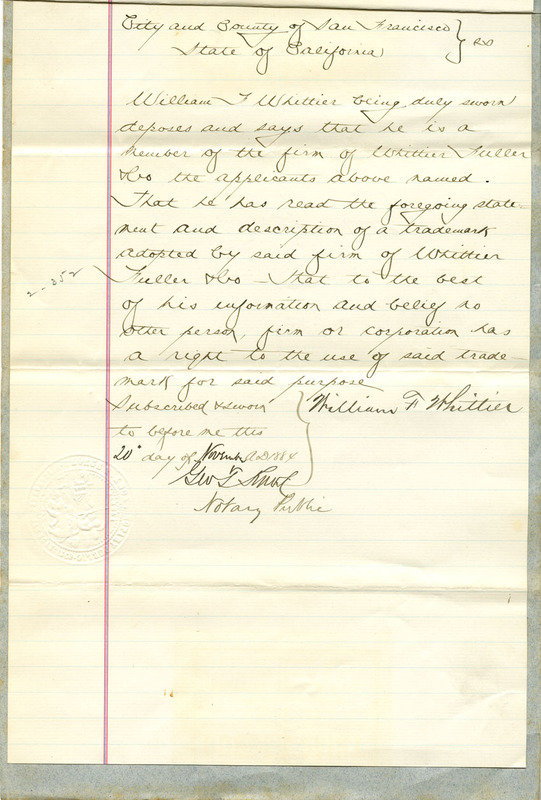 City and County of San Francisco } ss
State of California
William F Whittier being duly sworn
deposes and says that he is a
member of the firm of Whittier Fuller
&Co the applicants above named.
That he has read the foregoing state-
ment and description of a trademark
adopted by said firm of Whittier
Fuller &Co - That to the best
of his information and belief no
other person, firm or corporation has
a right to the use of said trade-
mark for said purpose
2-352
William F Whittier
Subscribed & sworn
to before me this
20" day of November AD 1884
Geo T Knox
Notary Public